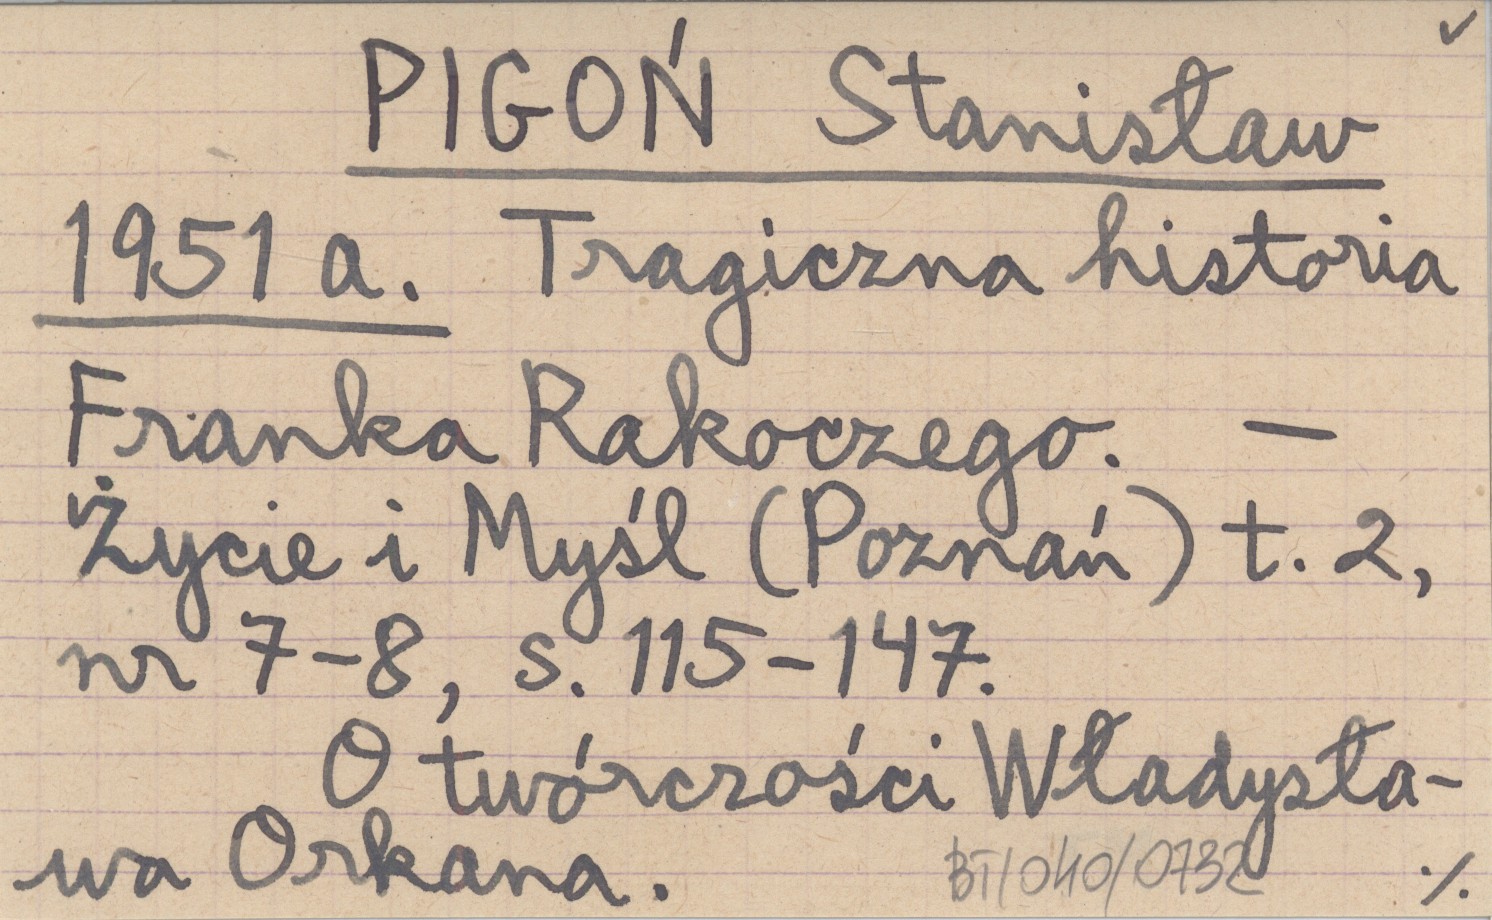 PIGOŃ Stanisław
1951 a. Tragiczna historia
Franka Rakoczego. —
Życie i Myśl (Poznań) t. 2,
nr 7-8, s. 115-147.
O twórczości Władysła-
wa Orkana.
BT/040/0732
./.